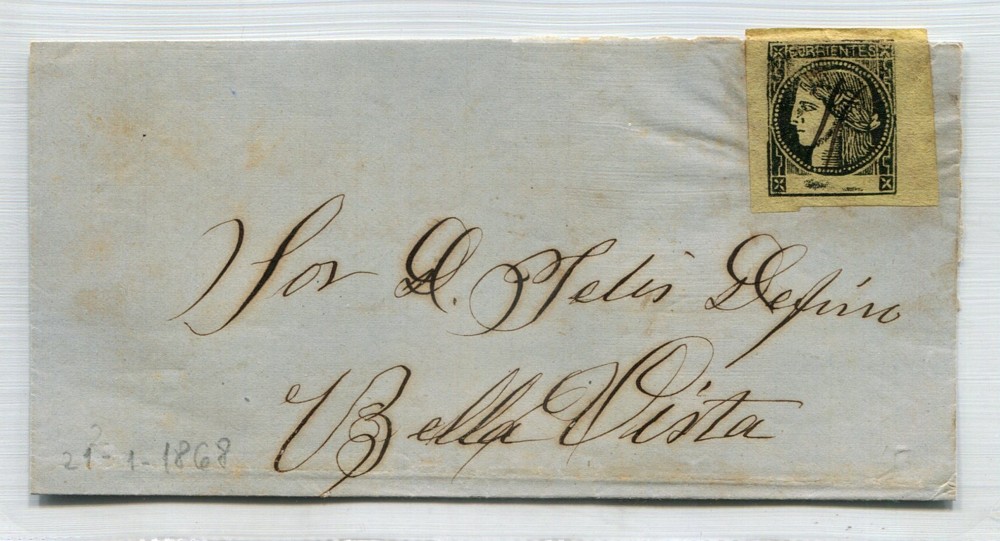 CORRIENTES
Sor D. Felis Defino
Bella Vista
21-1-1868